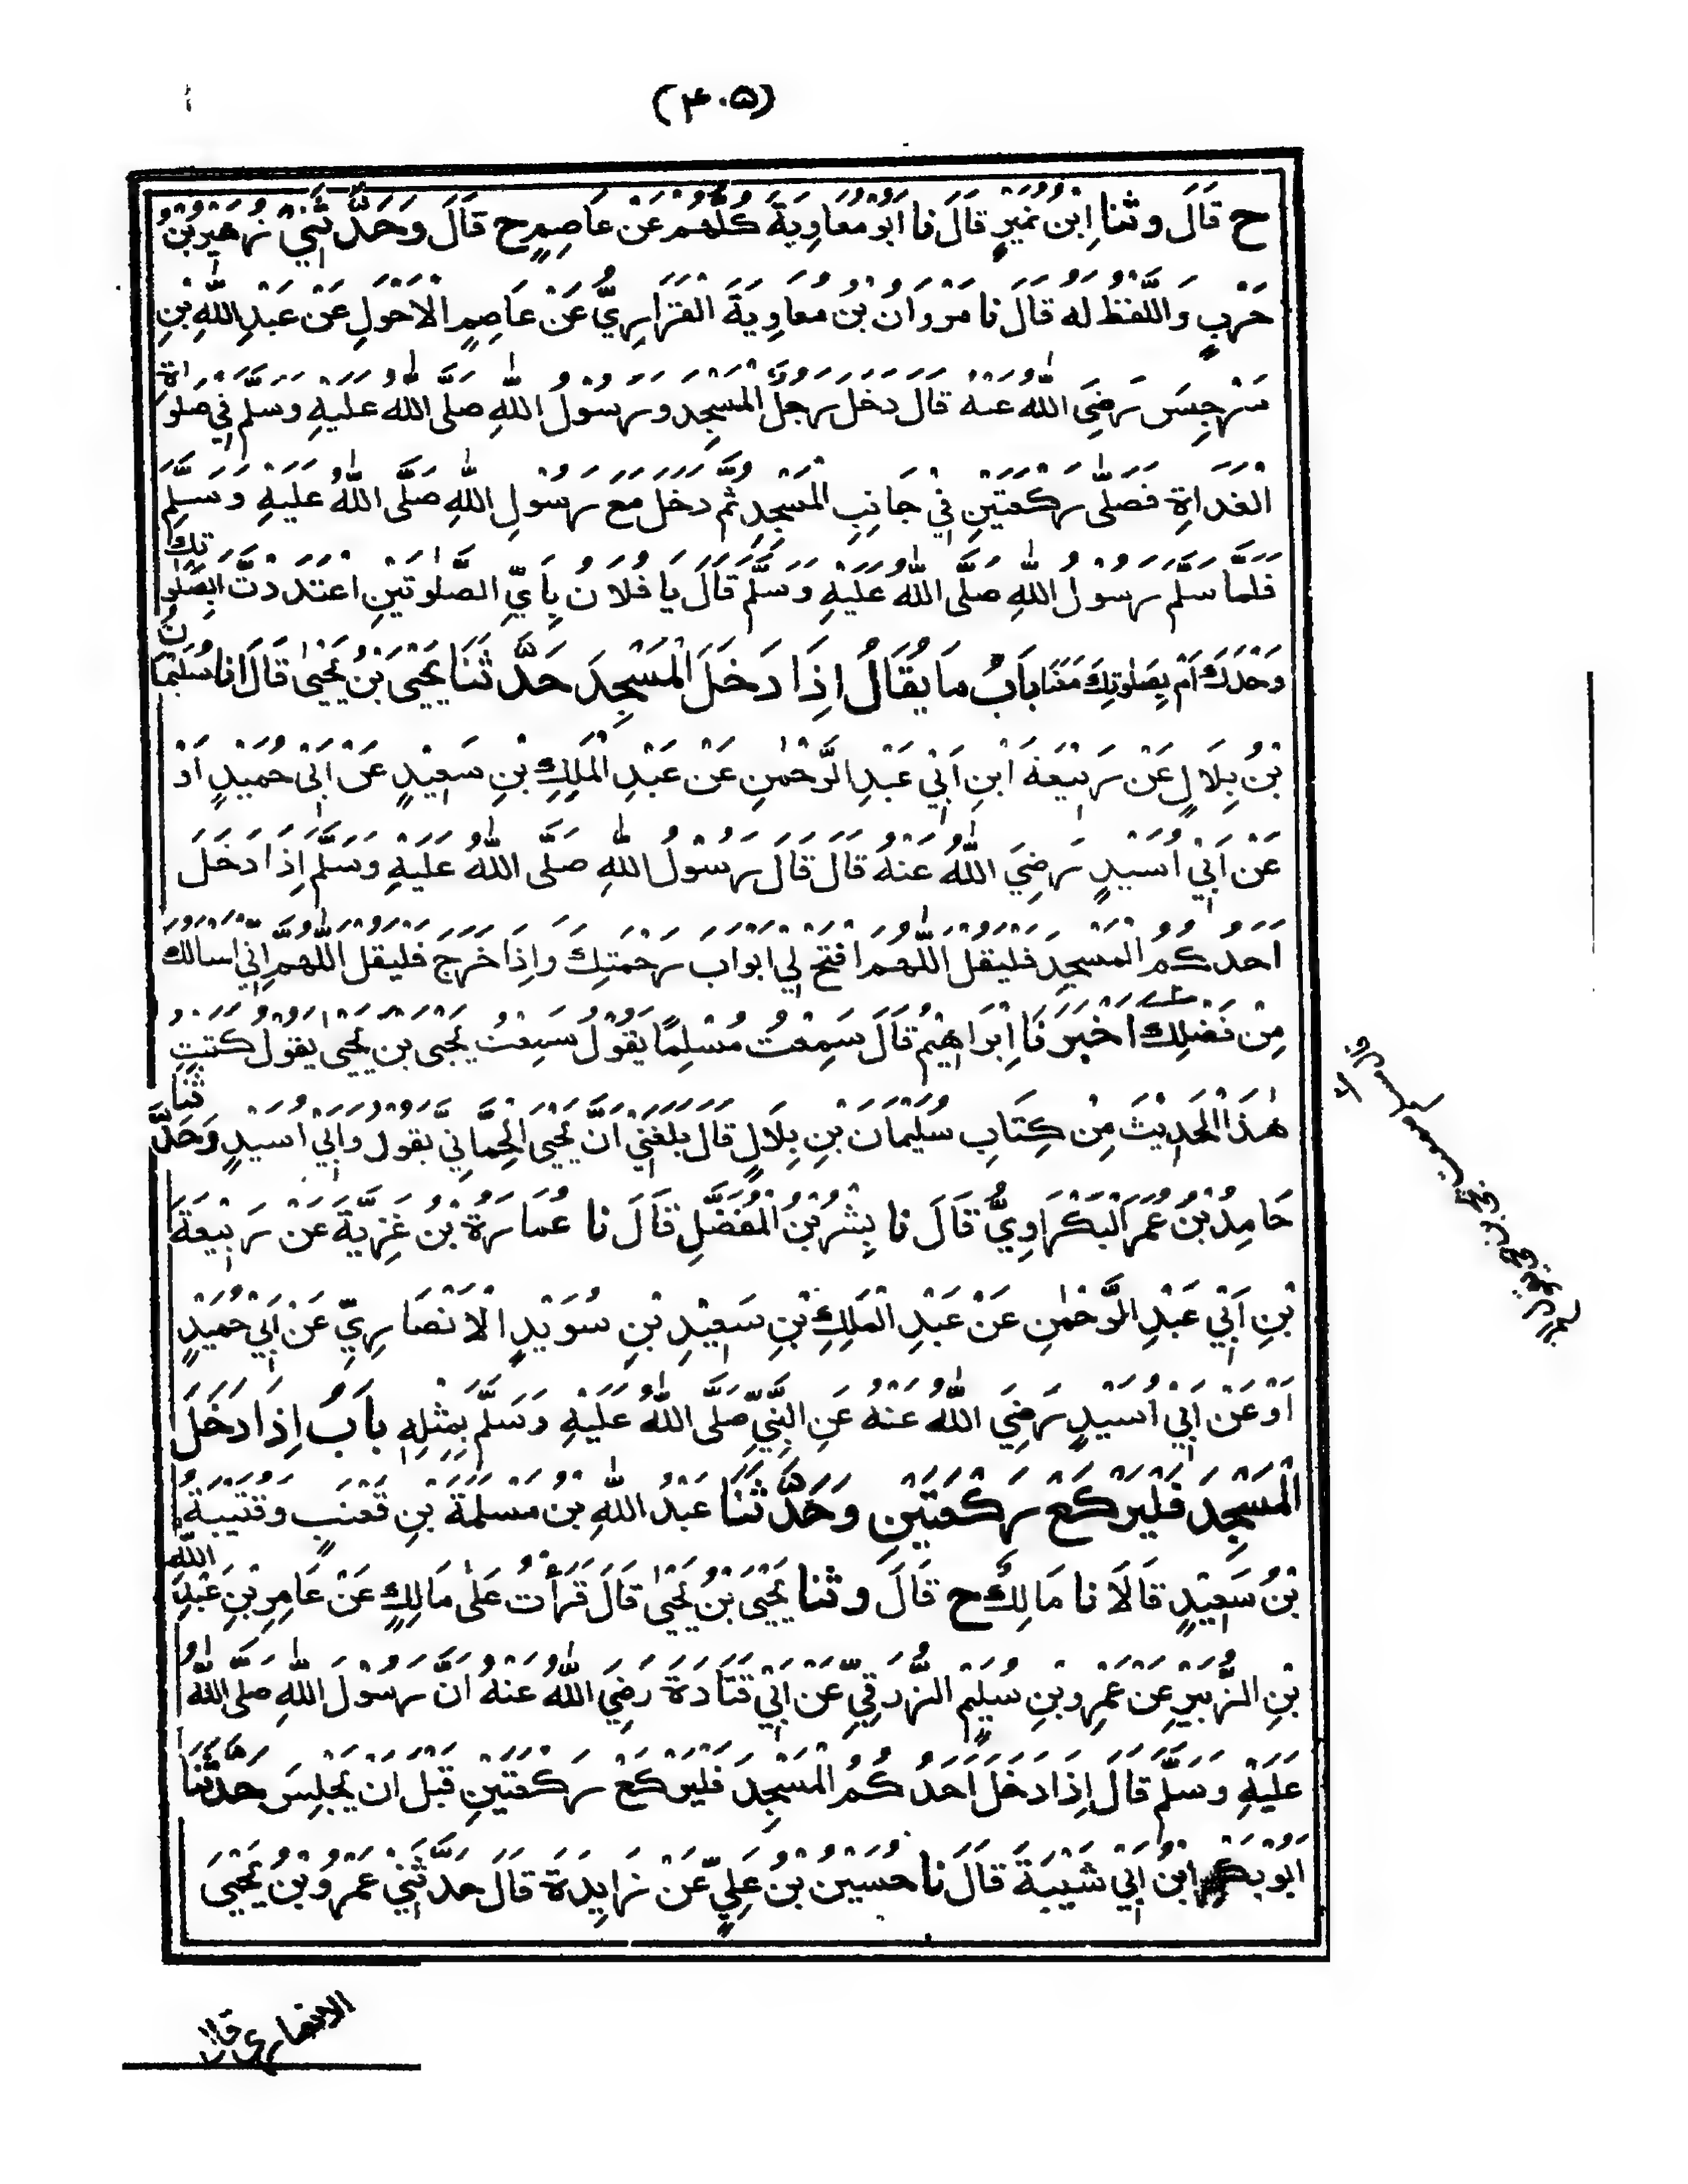 (۴۰۵)
ح قَالَ وثنا اِبْنُ نُمَيْرٍ قَالَ نا اَبُوْ مُعَاوِيَةَ كُلُّهُمْ عَنْ عَاصِمٍ ح قَالَ وَحَدَّثَنِيْ زُهَيْرُ بْنُ
حَرْبٍ وَاللَّفْظُ لَهُ قَالَ نَا مَرْوَانُ بْنُ مُعَاوِيَةَ الْفَزَارِيُّ عَنْ عَاصِمٍ الْاَحْوَلِ عَنْ عَبْدِ اللّٰهِ بْنِ
سَرْجِسَ رَضِيَ اللّٰهُ عَنْهُ قَالَ دَخَلَ رَجُلٌ الْمَسْجِدَ وَرَسُوْلُ اللّٰهِ صَلَّى اللّٰهُ عَلَيْهِ وَسَلَّمَ فِيْ صَلٰوةِ
الْغَدَاةِ فَصَلّٰى رَكْعَتَيْنِ فِيْ جَانِبِ الْمَسْجِدِ ثُمَّ دَخَلَ مَعَ رَسُوْلِ اللّٰهِ صَلَّى اللّٰهُ عَلَيْهِ وَسَلَّمَ
فَلَمَّا سَلَّمَ رَسُوْلُ اللّٰهِ صَلَّى اللّٰهُ عَلَيْهِ وَسَلَّمَ قَالَ يَا فُلَانُ بِاَيِّ الصَّلٰوتَيْنِ اعْتَدَدْتَّ اَبِصَلٰوتِكَ
وَحْدَكَ اَمْ بِصَلٰوتِكَ مَعَنَا بَابُ مَا يُقَالُ اِذَا دَخَلَ الْمَسْجِدَ حَدَّثَنَا يَحْيَى بْنُ يَحْيٰى قَالَ انا سُلَيْمٰنُ
بْنُ بِلَالٍ عَنْ رَبِيْعَةَ ابْنِ اَبِيْ عَبْدِ الرَّحْمٰنِ عَنْ عَبْدِ الْمَلِكِ بْنِ سَعِيْدٍ عَنْ اَبِيْ حُمَيْدٍ اَوْ
عَنْ اَبِيْ اُسَيْدٍ رَضِيَ اللّٰهُ عَنْهُ قَالَ قَالَ رَسُوْلُ اللّٰهِ صَلَّى اللّٰهُ عَلَيْهِ وَسَلَّمَ اِذَا دَخَلَ
اَحَدُكُمُ الْمَسْجِدَ فَلْيَقُلْ اَللّٰهُمَّ افْتَحْ لِيْ اَبْوَابَ رَحْمَتِكَ وَاِذَا خَرَجَ فَلْيَقُلْ اَللّٰهُمَّ اِنِّيْ اَسْاَلُكَ
مِنْ فَضْلِكَ اَخْبَرَنَا اِبْرَاهِيْمُ قَالَ سَمِعْتُ مُسْلِمًا يَقُوْلُ سَمِعْتُ يَحْيَى بْنَ يَحْيٰى يَقُوْلُ كَتَبْتُ
هٰذَا الْحَدِيْثَ مِنْ كِتَابِ سُلَيْمَانَ بْنِ بِلَالٍ قَالَ بَلَغَنِيْ اَنَّ يَحْيَى الْحِمَّانِيَّ يَقُوْلُ وَاَبِيْ اُسَيْدٍ وَحَدَّثَنَا
حَامِدُ بْنُ عُمَرَ الْبَكْرَاوِيُّ قَالَ نا بِشْرُ بْنُ الْمُفَضَّلِ قَالَ نا عُمَارَةُ بْنُ غَزِيَّةَ عَنْ رَبِيْعَةَ
بْنِ اَبِيْ عَبْدِ الرَّحْمٰنِ عَنْ عَبْدِ الْمَلِكِ بْنِ سَعِيْدِ بْنِ سُوَيْدٍ الْاَنْصَارِيِّ عَنْ اَبِيْ حُمَيْدٍ
اَوْ عَنْ اَبِيْ اُسَيْدٍ رَضِيَ اللّٰهُ عَنْهُ عَنِ النَّبِيِّ صَلَّى اللّٰهُ عَلَيْهِ وَسَلَّمَ بِمِثْلِهِ بَابُ اِذَا دَخَلَ
الْمَسْجِدَ فَلْيَرْكَعْ رَكْعَتَيْنِ وَحَدَّثَنَا عَبْدُ اللّٰهِ بْنُ مَسْلَمَةَ بْنِ قَعْنَبٍ وَقُتَيْبَةُ
بْنُ سَعِيْدٍ قَالَا نا مَالِكٌ ح قَالَ وثنا يَحْيَى بْنُ يَحْيٰى قَالَ قَرَأْتُ عَلٰى مَالِكٍ عَنْ عَامِرِ بْنِ عَبْدِ اللّٰهِ
بْنِ الزُّبَيْرِ عَنْ عَمْرِو بْنِ سُلَيْمٍ الزُّرَقِيِّ عَنْ اَبِيْ قَتَادَةَ رَضِيَ اللّٰهُ عَنْهُ اَنَّ رَسُوْلَ اللّٰهِ صَلَّى اللّٰهُ
عَلَيْهِ وَسَلَّمَ قَالَ اِذَا دَخَلَ اَحَدُكُمُ الْمَسْجِدَ فَلْيَرْكَعْ رَكْعَتَيْنِ قَبْلَ اَنْ يَّجْلِسَ حَدَّثَنَا
اَبُوْ بَكْرِ ابْنُ اَبِيْ شَيْبَةَ قَالَ نا حُسَيْنُ بْنُ عَلِيٍّ عَنْ زَايِدَةَ قَالَ حَدَّثَنِيْ عَمْرُو بْنُ يَحْيَى
الانصاري قال